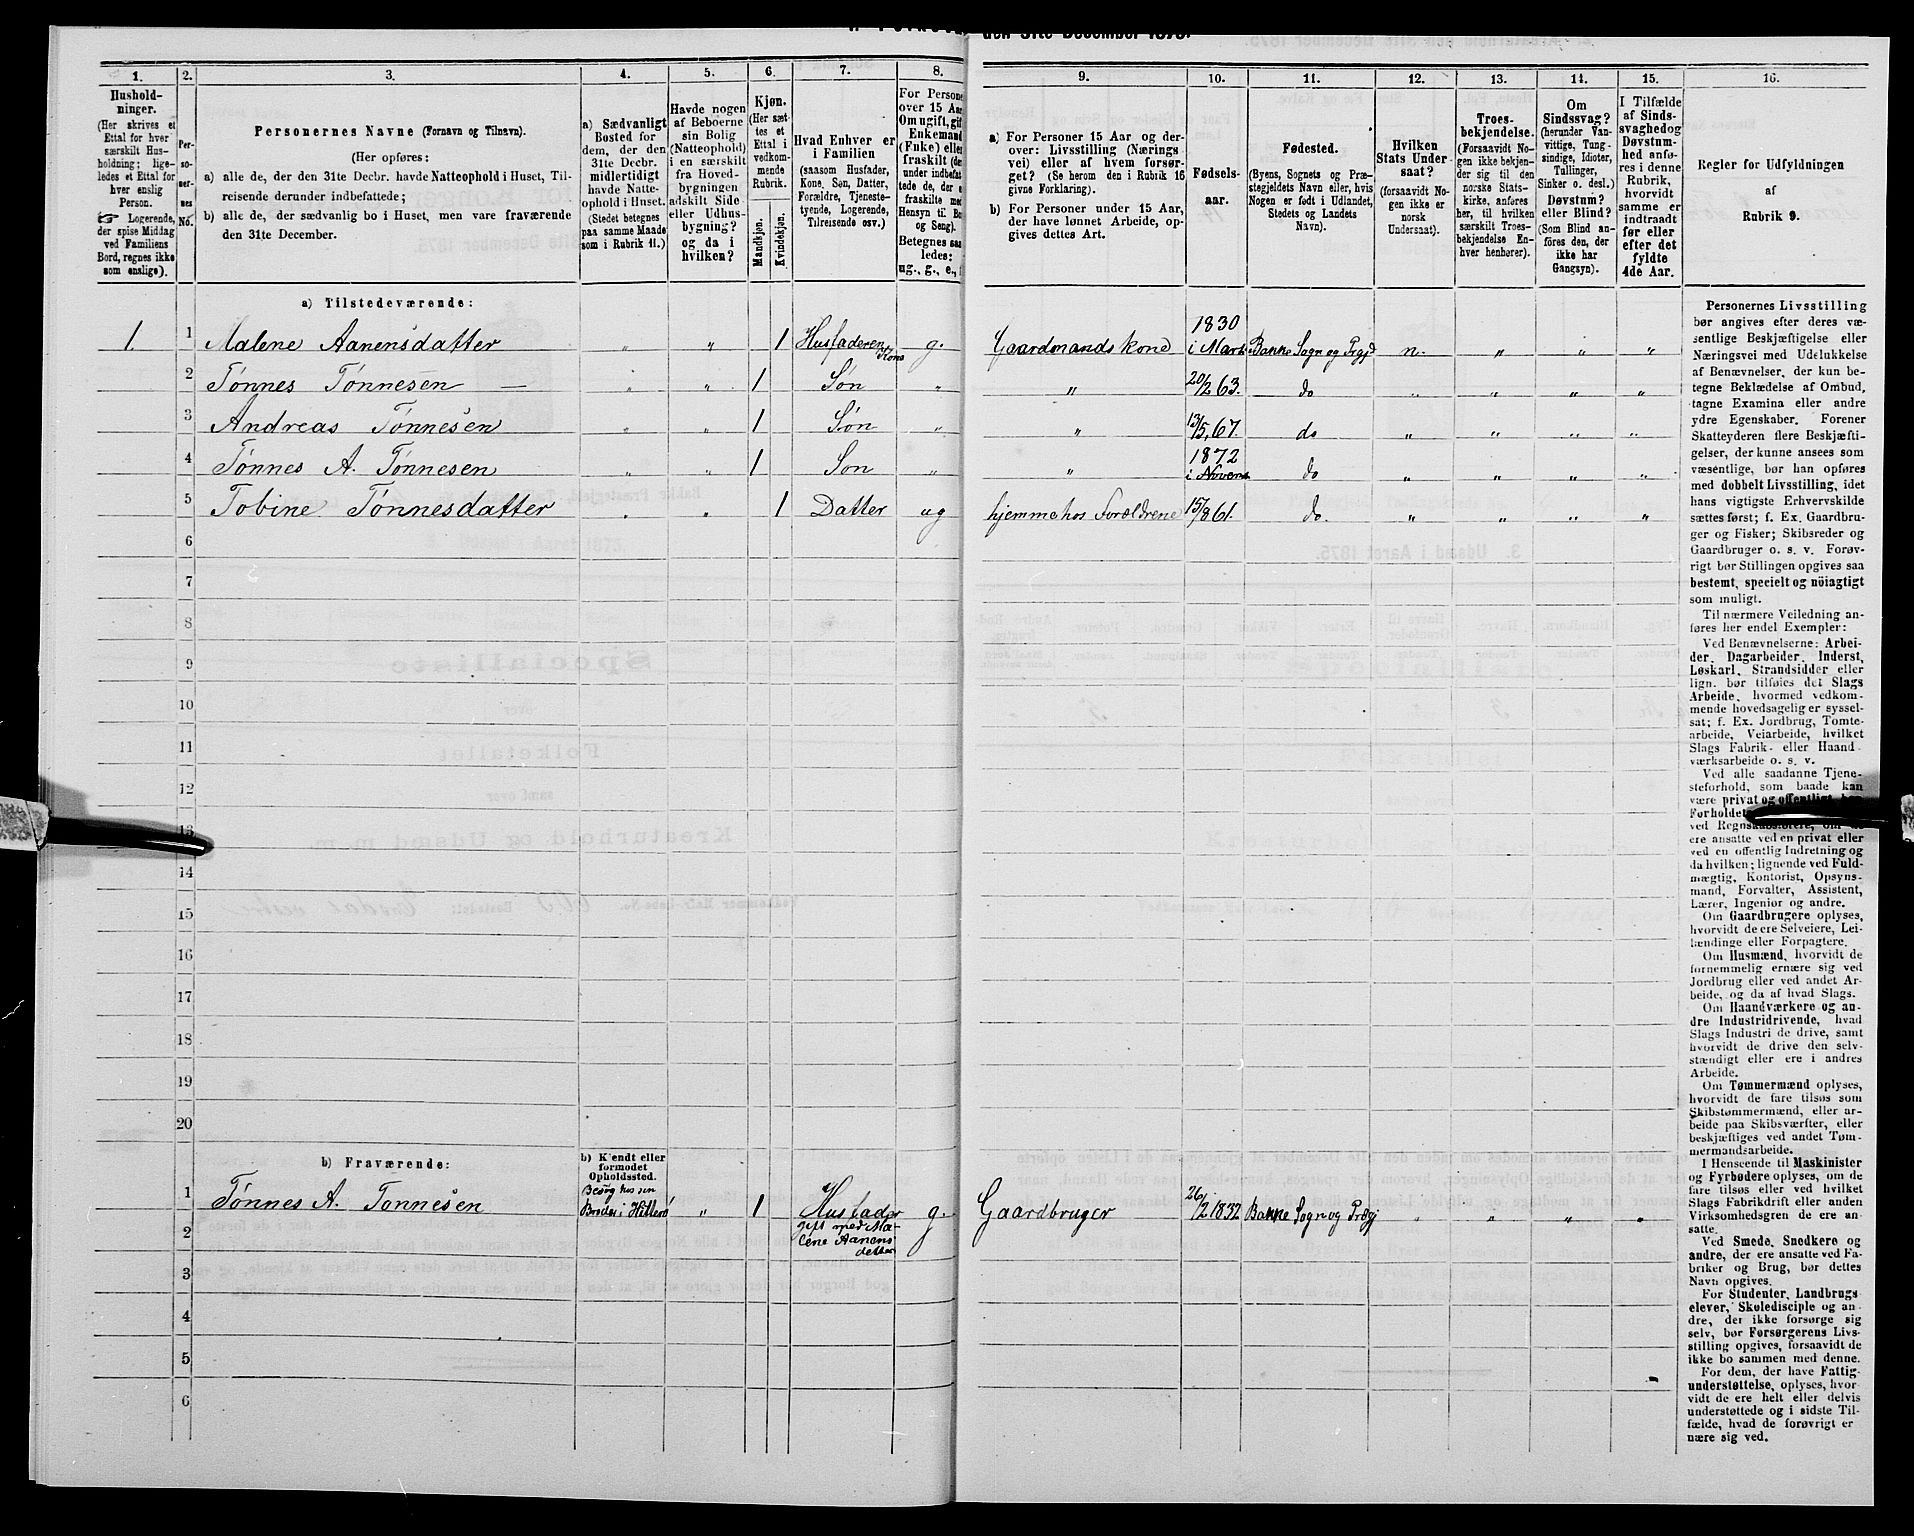 den 31te December 1875.
1.
Hushold-
ninger.
(Her skrives et
Ettal for hver
særskilt Hus-
holdning; lige-
ledes et Ettal for
hver enslig
Person.
☞ Logerende,
der spise Middag
ved Familiens
Bord, regnes ikke
som enslige).
2.
Per-
so-
ner-
nes
No.
3.
Personernes Navne (Fornavn og Tilnavn).
(Her opføres:
a) alle de, der den 31te Decbr. havde Natteophold i Huset, Til-
reisende derunder indbefattede;
b) alle de, der sædvanlig bo i Huset, men vare fraværende
den 31te December.
4.
a) Sædvanligt
Bosted for
dem, der den
31te Decbr.
midlertidigt
havde Natte-
ophold i Huset.
(Stedet betegnes
paa samme Maade
som i Rubrik 11.)
5.
Havde nogen
af Beboerne
sin Bolig
(Natteophold)
i en særskilt
fra Hoved-
bygningen
adskilt Side
eller Udhus-
bygning?
og da i
hvilken?
6.
Kjøn.
(Her sæt-
tes et
Ettal i
vedkom-
mende
Rubrik.
Mandkjøn.
Kvindekjøn.
7.
Hvad Enhver er
i Familien
(saasom Husfader,
Kone, Søn, Datter,
Forældre, Tjeneste-
tyende, Logerende,
Tilreisende osv.)
8.
For Persone
over 15 Aar
Om ugift, gif
Enkemand
(Fuke) eller
fraskilt (de
under indbefat-
tede de, der e
fraskilte med
Hensyn til Bo
og Seng).
Betegnes saa
ledes:
ug., g., e.,
9.
a) For Personer 15 Aar og der-
over: Livsstilling (Nærings
vei) eller af hvem forsør-
get? (Se herom den i Rubrik 16
givne Forklaring).
b) For Personer under 15 Aar,
der have lønnet Arbeide, op-
gives dettes Art.
10.
Fødsels-
aar.
11.
Fødested.
(Byens, Sognets og Præ-
stegjeldets Navn eller, hvis
Nogen er født i Udlandet,
Stedets og Landets
Navn).
12.
Hvilken
Stats Under
saat?
(forsaavidt No-
gen ikke er
norsk
Undersaat).
13.
Troes-
bekjendelse.
(Forsaavidt No
gen ikke bekjen-
der sig til den
norske Stats-
kirke, anføres
her, til hvilken
særskilt Troes-
bekjendelse En-
hver henhører).
14.
Om
Sindssvag?
(herunder Van-
vittige, Tung-
sindige, Idioter,
Tullinger,
Sinker o. desl.)
Døvstum?
eller Blind?
(Som Blind an-
føres den, der
ikke har
Gangsyn).
15.
I Tilfælde
af Sinds-
svaghed og
Døvstum-
hed anfø-
res i denne
Rubrik,
hvorvidt
samme er
indtraadt
før eller
efter det
fyldte
4de Aar.
16.
Regler for Udfyldningen
af
Rubrik 9.
a) Tilstedeværende:
1. 1 Malene Aanensdatter " " 1 Husfaderens Kone g. Gaardmandskone 1830 i Marts Bakke Sogn og Prgjd n. " " "
2 Tønnes Tønnesen — " " 1 Søn " " 20/2 63. do " " " "
3 Andreas Tønnesen " " 1 Søn " " 13/5 67. do " " " "
4 Tønnes A. Tønnesen " " 1 Søn " " 1872 i Novem. do " " " "
5 Tobine Tønnesdatter " " 1 Datter ug hjemme hos Forældrene 15/8 61. do. " " " "
6
7
8
9
10
11
12
13
14
15
16
17
18
19
20
b) Fraværende:
b) Kjendt eller
formodet
Opholdssted.
1 Tønnes A. Tønnesen Besøg hos sen Broder i Hitterø " 1 Husfader g. Gaardbruger 26/2 1832 Bakke Sogn og Prægj " " " "
2 gift med Ma-
lene Aanens
datter
3
4
5
6
Personernes Livsstilling
bør angives efter deres væ-
sentlige Beskjæftigelse eller
Næringsvei med Udelukkelse
af Benævnelser, der kun be-
tegne Beklædelse af Ombud,
tagne Examina eller andre
ydre Egenskaber. Forener
Skatteyderen flere Beskjæfti-
gelser, der kunne ansees som
væsentlige, bør han opføres
med dobbelt Livsstilling, idet
hans vigtigste Erhvervskilde
sættes først; f. Ex. Gaardbru-
ger og Fisker; Skibsreder og
Gaardbruger o. s. v. Forøv-
rigt bør Stillingen opgives saa
bestemt, specielt og nöiagtigt
som muligt.
Til nærmere Veiledning an-
føres her endel Exempler:
Ved Benævnelserne: Arbei-
der, Dagarbeider, Inderst,
Løskarl, Strandsidder eller
lign. bør tilføies det Slags
Arbeide, hvormed vedkom-
mende hovedsagelig er syssel-
sat; f. Ex. Jordbrug, Tomte-
arbeide, Veiarbeide, hvilket
Slags Fabrik- eller Haand
værksarbeide o. s. v.
Ved alle saadanne Tjene-
steforhold, som baade kan
være privat og offentligt, bør
Forholdet
ved
ere ansatte ved en privat eller
ved en offentlig Indretning og
da hvilken; lignende ved Fuld-
mægtig, Kontorist, Opsyns-
mand, Forvalter, Assistent,
Lærer, Ingeniør og andre.
Om Gaardbrugere oplyses,
hvorvidt de ere Selveiere, Lei-
lændinge eller Forpagtere.
Om Husmænd, hvorvidt de
fornemmelig ernære sig ved
Jordbrug eller ved andet Ar-
beide, og da af hvad Slags.
Om Haandværkere og an-
dre Industridrivende, hvad
Slags Industri de drive, samt
hvorvidt de drive den selv-
stændigt eller ere i andres
Arbeide.
Om Tømmermænd oplyses,
hvorvidt de fare tilsøs som
Skibstømmermænd, eller ar-
beide paa Skibsværfter, eller
beskjæftiges ved andet Tøm-
mermandsarbeide.
I Henseende til Maskinister
og Fyrbødere oplyses, om de
fare tilsøs eller ved hvilket
Slags Fabrikdrift eller anden
Virksomhedsgren de ere an-
satte.
Ved Smede, Snedkere og
andre, der ere ansatte ved Fa-
briker og Brug, bør dettes
Navn opgives.
For Studenter, Landbrugs
elever, Skoledisciple og an-
dre, der ikke forsørge sig
selv, bør Forsørgerens Livs-
stilling opgives, forsaavidt de
ikke bo sammen med denne.
For dem, der have Fattig-
understøttelse, oplyses, hvor-
vidt de ere helt eller delvis
understøttede og i sidste Til-
fælde, hvad de forøvrigt er
nære sig ved.